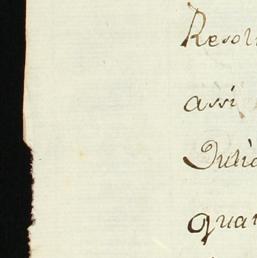 Resol
assi
Julia
quan